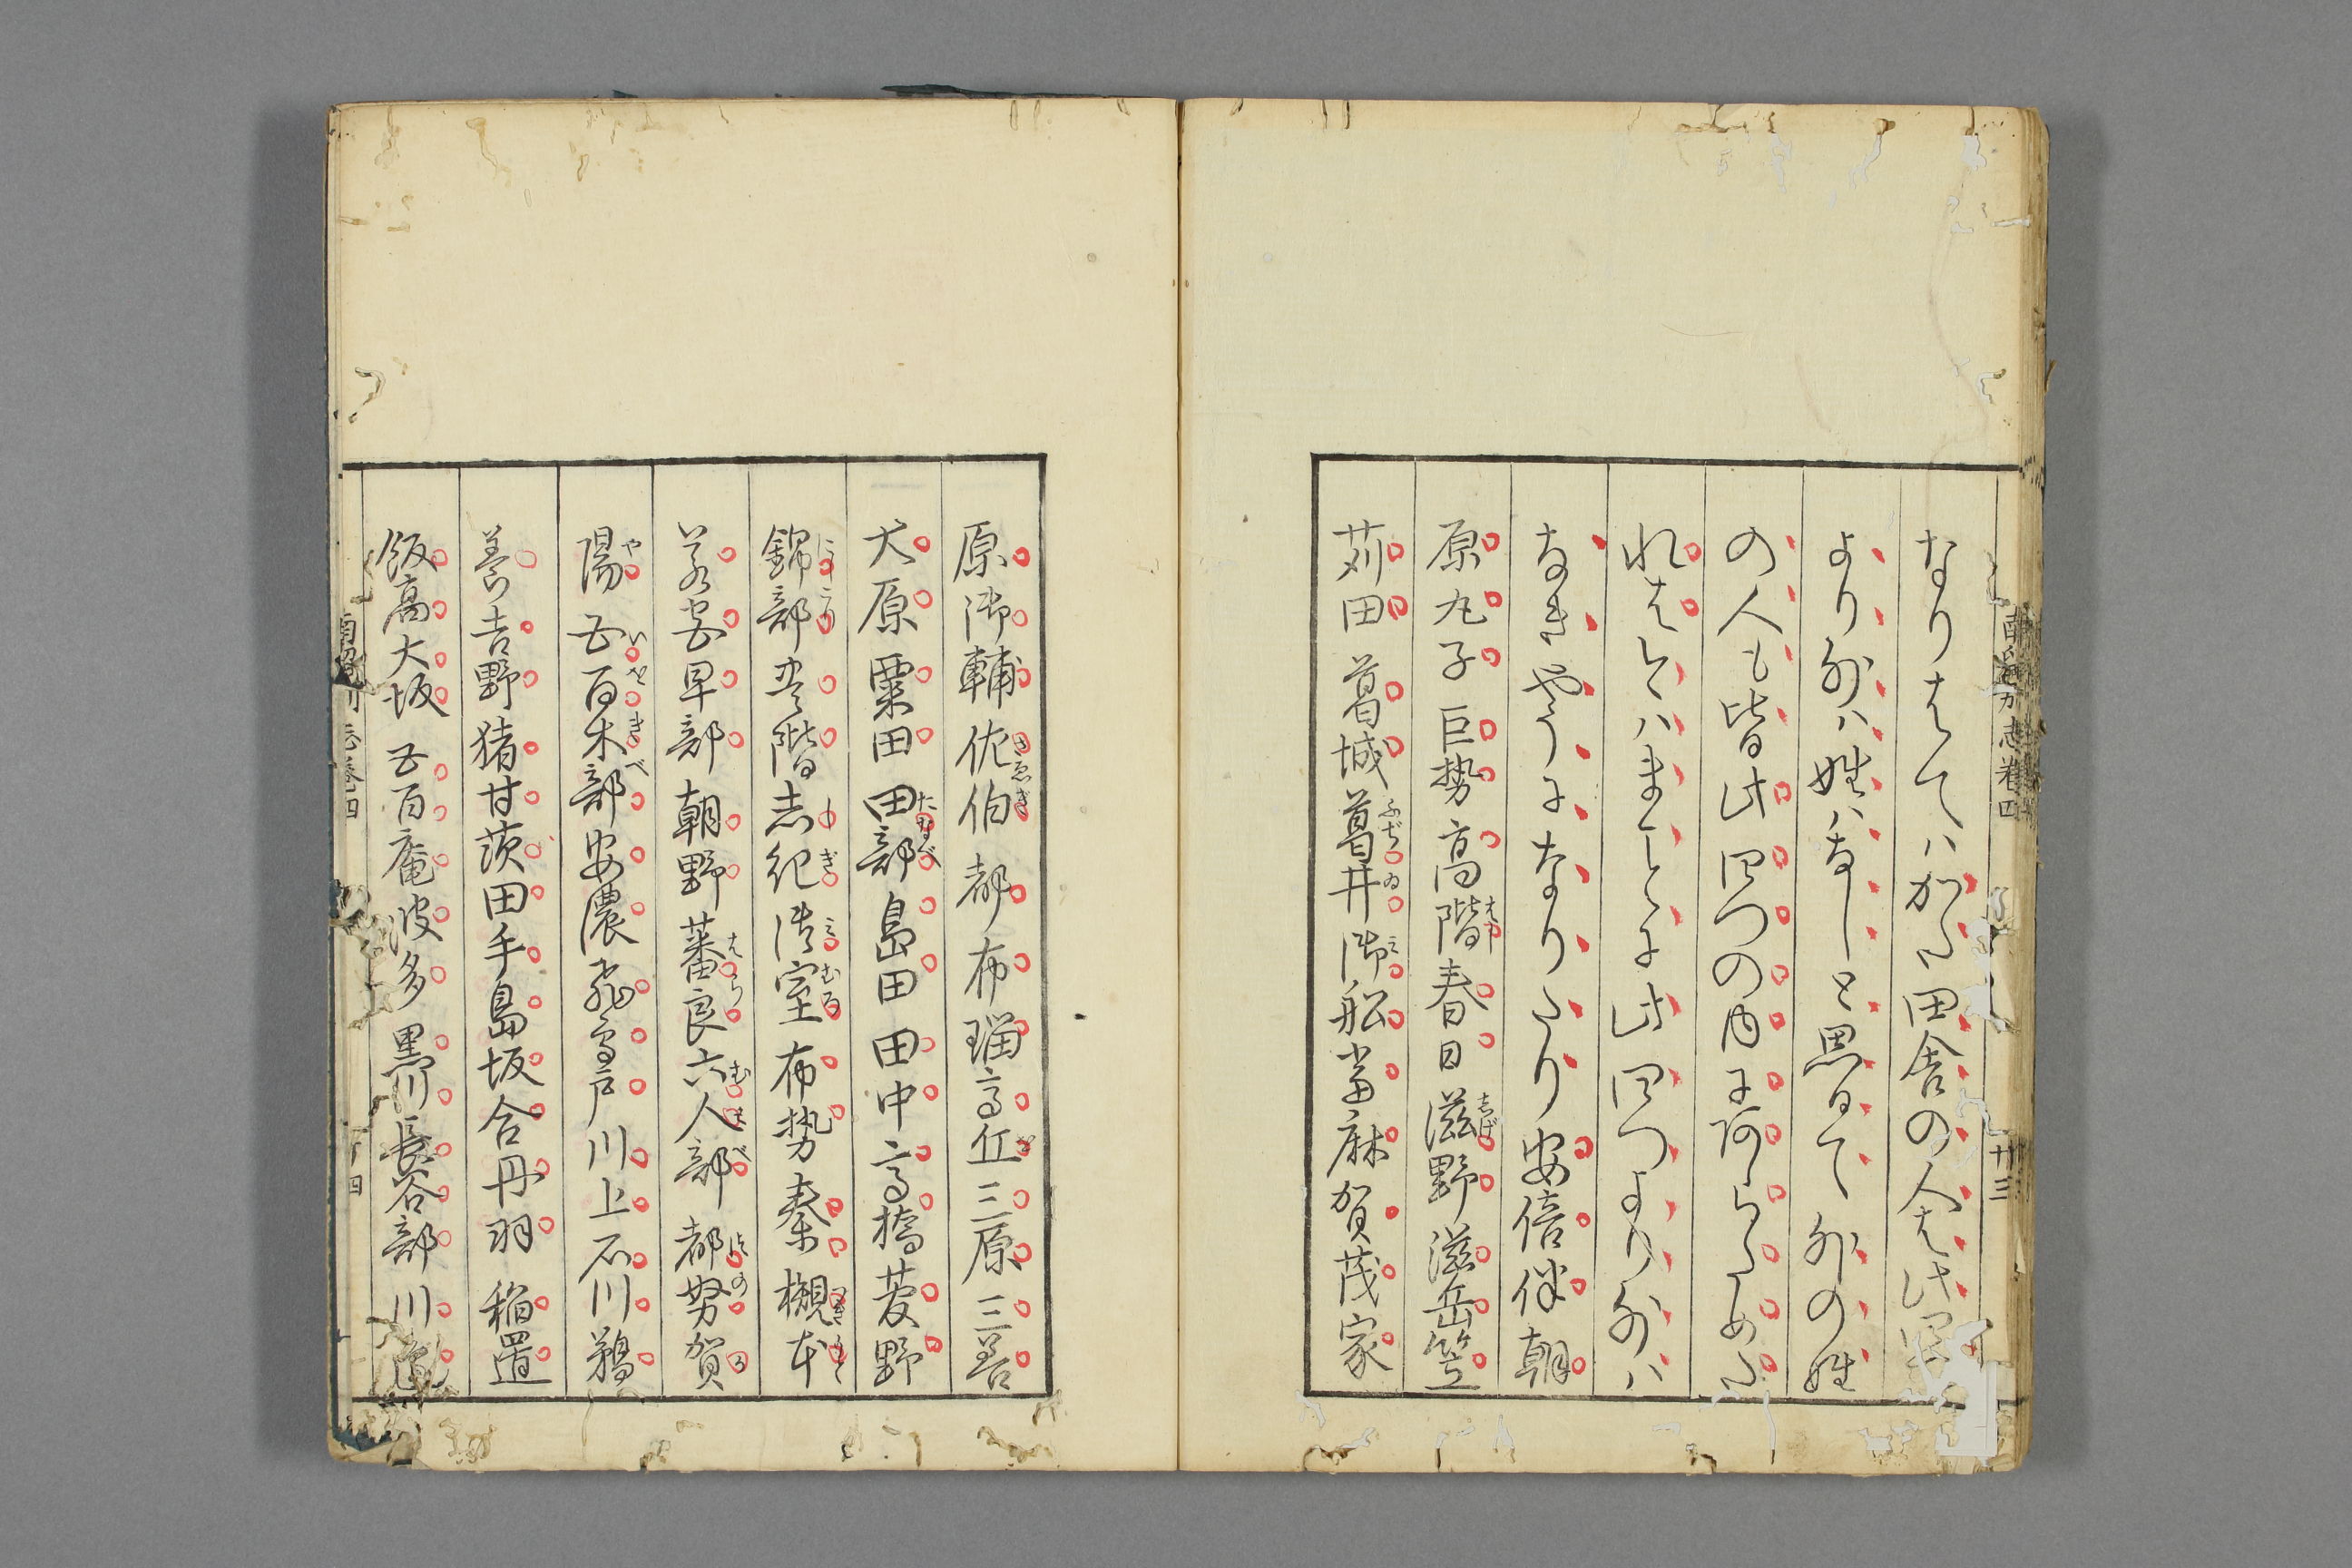 なりはてハかへる田舎の人は此四
より外ハ姓ハなしと思ひて外の姓
の人も皆此四つの内にあらためた
れはいまハまことに此四つより外ハ
なきやうになりたり安倍伴朝
原丸子巨勢高階春日滋野滋岳笠
苅田葛城葛井御船當麻賀茂家
原御輔佐伯都布瑠高丘三原三善
大原粟田田部島田田中高橋菅野
錦部登階志紀御室布勢秦槻本
若安早部朝野蕃良六人部都努賀
陽五百木部安濃飛鳥戸川上石川鵜
養吉野猪甘茨田手島坂合丹羽稲置
飯高大坂五百庵波多黒川長谷部川邊